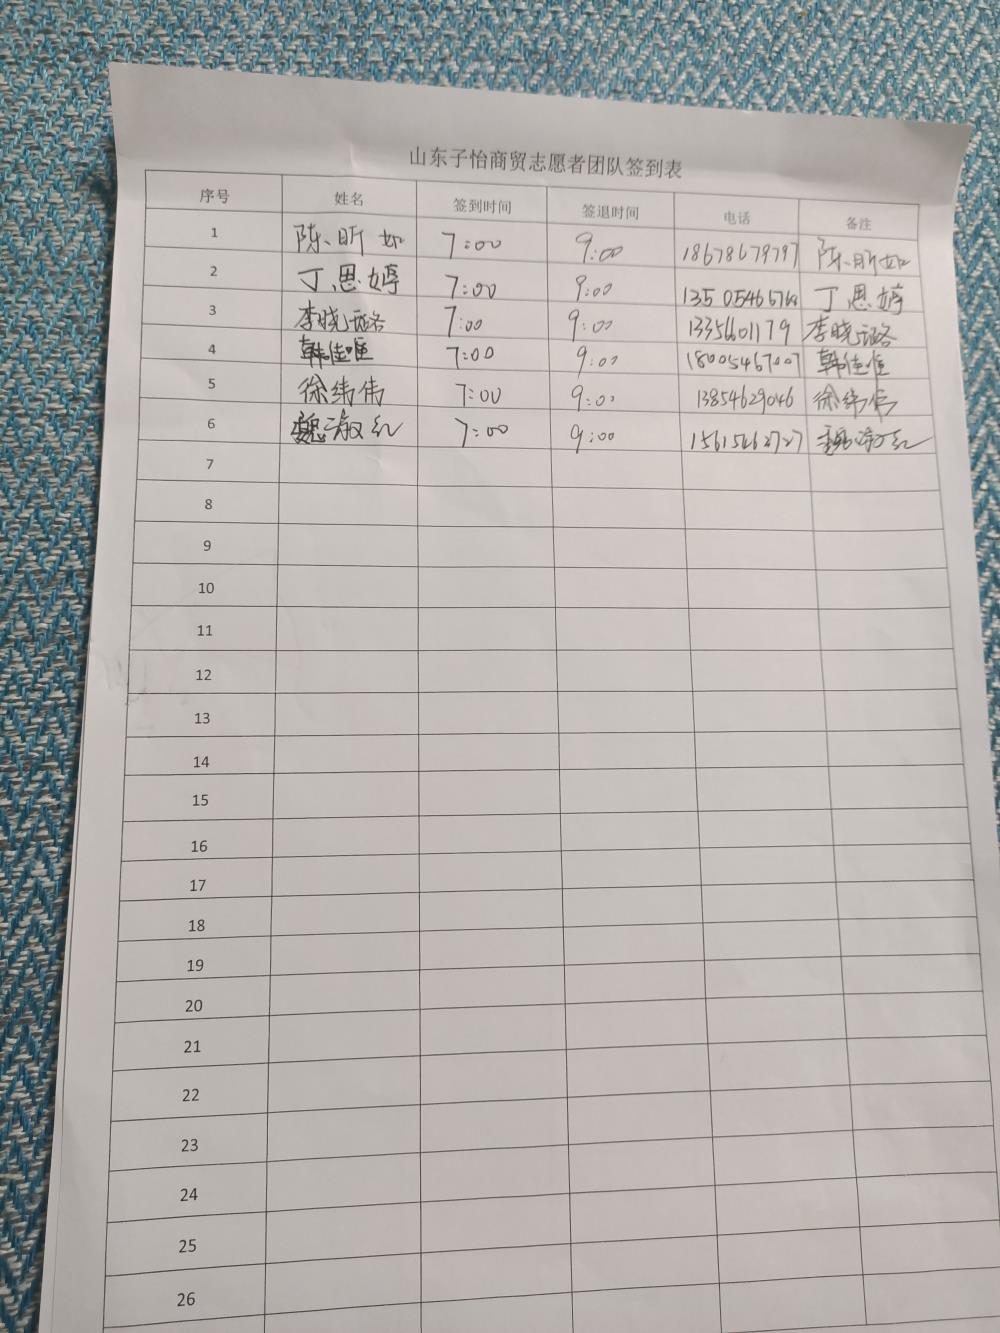 山东子怡商贸志愿者团队签到表
序号 姓名 签到时间 签退时间 电话 备注
1 陈昕如 7:00 9:00 18678679797 陈昕如
2 丁恩婷 7:00 9:00 丁恩婷
3 李晓璐 7:00 9:00 13356601179 李晓璐
4 韩佳唯 7:00 9:00 18005467007 韩佳唯
5 徐纬伟 7:00 9:00 13854629046 徐纬伟
6 魏淑红 7:00 9:00 15615462727 魏淑红
7
8
9
10
11
12
13
14
15
16
17
18
19
20
21
22
23
24
25
26